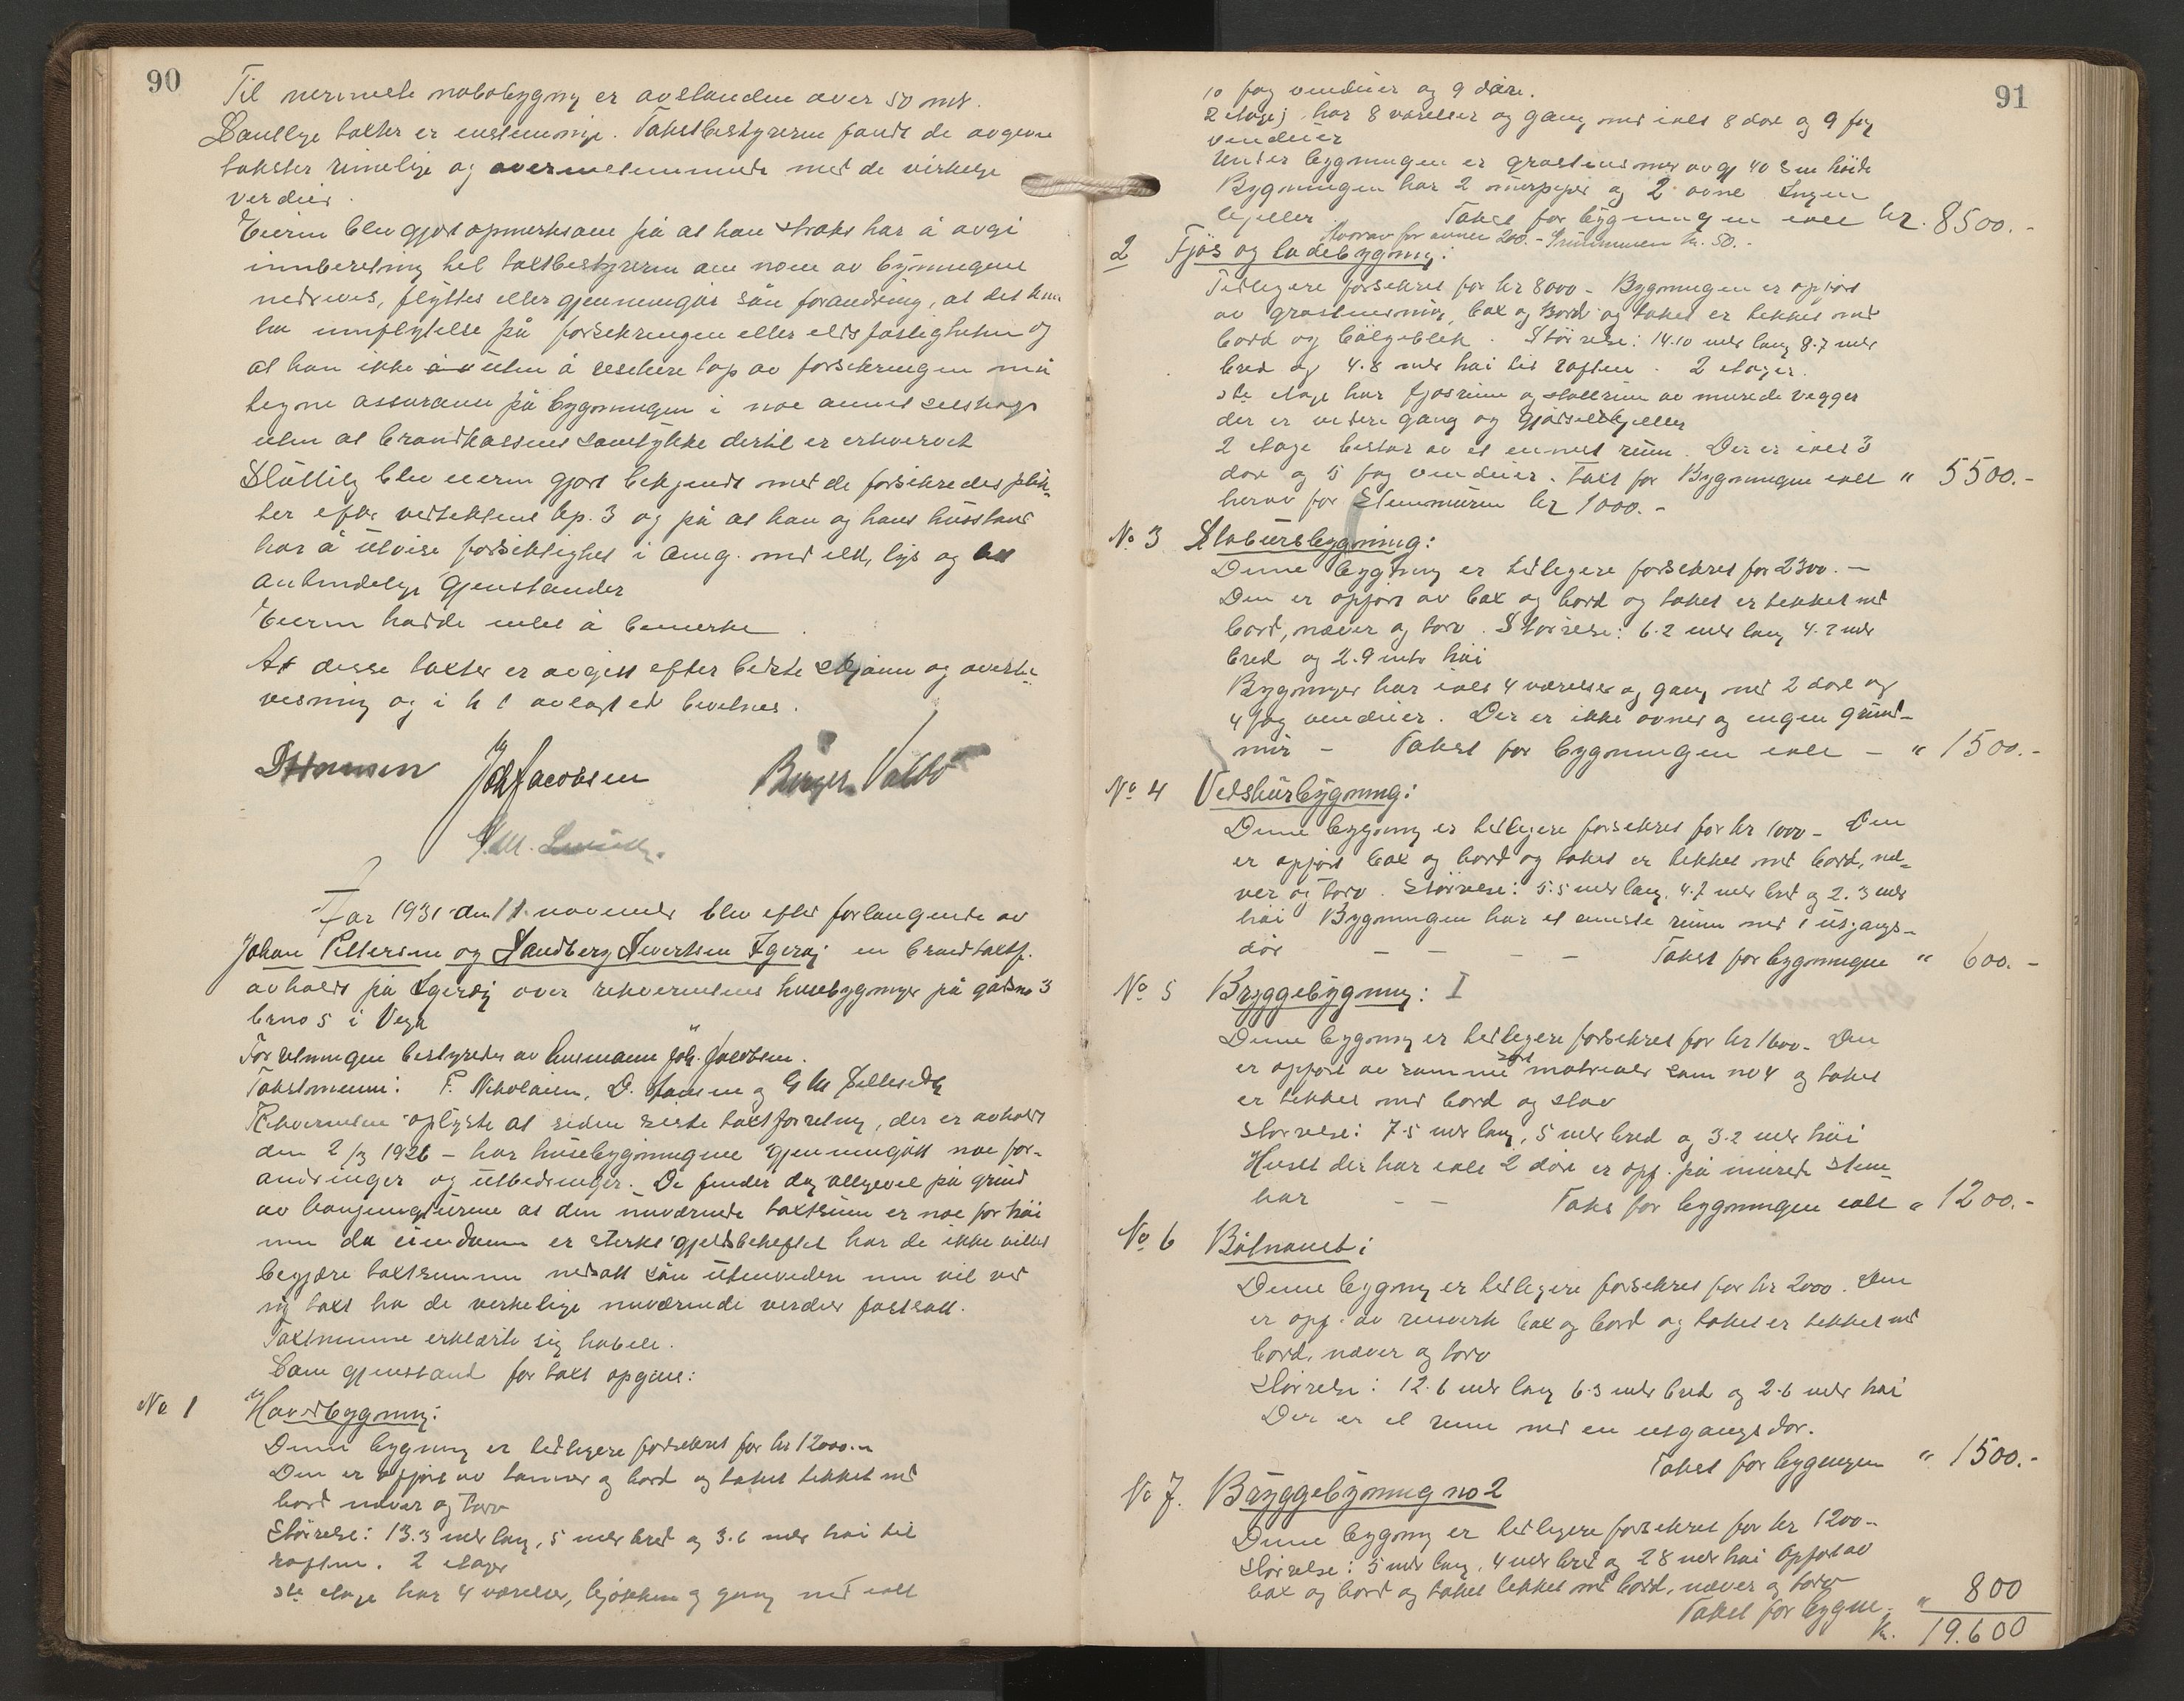 90
Til nermeste nabobygnig er avstanden over 50 mt.
Samtlige takster er enstemmige. Takstbestyreren fandt de avgivne
takster rimelige og overensstemmende med de virkelige
verdier.
Eieren blev gjort opmerksom på at han straks har å avgi
innberetning til takstbestyreren om noen av bygningene
nedrives, flyttes eller gjennemgår sån forandring, at det kan
ha innflytelse på forsekringen eller eldsfarligheten og
at han ikke uten å reskere tap av forsekringen må
tegne assuranse på bygningen i noe annet selskap
uten at brandkassens samtykke dertil er erhvervet
Sluttelig blev eieren gjort bekjendt med de forsikredes plik-
ter efter vedtektens kp. 3 og på at han og hans husstand
har å utvise forsiktighet i omg. med ild, lys og
antendelige gjenstander
Eieren hadde intet å bemerke.
At disse takster er avgitt efter beste skjønn og overbe-
visning og i h t avlagt ed bevitnes.
D Hansen Joh Jacobsen Birger Valbø
År 1931 den 11 november blev efter forlangende av
Johan Pettersen og Sandberg Sivertsen Igerøj en brandtakstf.
avholdt på Igerøj over rekvirentens husebygninger på gårdsno 3
brno 5 i Vega
Forretningen bestyredes av lensmann Joh. Jacobsen.
Takstmenn: P. Nikolaisen, D. Hansen og
Rekvirenten oplyste at siden siste takstforretning, der er avholdt
den 2/3 1926 – har husebygningene gjennemgått noe for-
andringer og utbedringer. De finder dog allikevel på grund
av konjungturene at den nuværende takstsum er noe for høi
men da eiendommen er sterkt gjeldsbeheftet har de ikke villet
begjære takstsummen nedsatt sån utenvidere men vil ved
ny takst ha de verkelige nuværende verdier fastsatt.
Takstmennene erklærte sig habile.
Som gjenstand for takst opgives:
No 1 Hovedbygning:
Denne bygning er tidligere forsekret for kr 12000.-
Den er opført av tømmer og bord og taket tekket med
bord næver og torv
Størrelse: 13.3 meter lang, 5 meter bred og 3.6 meter høi til
raftene. 2 etager
1ste etage har 4 værelser, kjøkken og gang med ialt
91
10 fag vinduer og 9 døre.
2 etage har 8 værelser og gang med ialt 8 døre og 9 fag
vinduer
Under bygningen er gråstensmur avgj 40 s m høide
Bygningen har 2 murpiper og 2 ovne Ingen
kjeller. Takst for bygningen ialt kr. 8500.-
Hvorav for ovner 200.- Grunnmuren kr. 50.-
2 Fjøs og ladebygnig:
Tidligere forsekret for kr 8000 - Bygningen er opført
av gråstensmur, box og Bord og taket er tekket med
bord og bølgeblek. Størrelse: 14.10 meter lang 8.7 meter
bred og 4.8 meter høi til raften. 2 etager.
1ste etage har fjøsrum og stallrum av murede vegger
der er videre gang og gjødselkjeller
2 etage består av et ennest rum. Der er ialt 3
døre og 5 fag vinduer. Takst for Bygningen ialt " 5500.-
herav for Stenmuren kr 1000.-
No 3 Stabursbygning:
Denne bygning er tidligere forsekret for 2300.-
Den er opført av box og bord og taket er tekket med
bord, næver og torv. Størrelse: 6.2 meter lang 4.2 meter
bred og 2.9 meter høi
Bygninger har ialt 4 værelser og gang med 2 døre og
4 fag vinduer. Der er ikke ovner og ingen grund-
mur - Takst for bygningen ialt - " 1500.-
No 4 Vedskurbygning:
Denne bygning er tidligere forsekret for kr 1000 - Den
er opført box og bord og taket er tekket med bord, næ-
ver og torv. Størrelse: 5.5 meter lang, 4.7 meter bred og 2.3 meter
høi Bygningen har et eneste rum med 1 utgangs-
dør - - - - Takst for bygningen " 600.-
No 5 Bryggebygning: I
Denne bygning er tidligere forsekret for kr 1600 - Den
er opført av samme slags matrialer som no 4 og taket
er tekket med bord og
størrelse: 7.5 meter lang, 5 meter bred og 3.2 meter høi
Huset der har ialt 2 døre er opf. på murede sten-
kar - - Takst for bygningen ialt " 1200.-
No 6 Båtnaust:
Denne bygning er tidligere forsekret for kr 2000. Den
er opf. av reisverk box og bord og taket er tekket med
bord, næver og torv
Størrelse: 12.6 meter lang 6.3 meter bred og 2.6 meter høi
Der er et rum med en utgangsdør.
Takst for bygningen " 1500.-
No 7. Bryggebygning no 2
Denne bygning er tidligere forsekret for kr 1200 -
størrelse: 5 meter lang, 4 meter bred og 28 meter høi Opført av
box og bord og taket tekket med bord, næver og torv
Takst for bygne. " 800
kr. 19.600